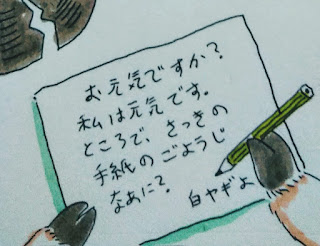 お元気ですか?
私は元気です。
ところで、さっきの
手紙のごようじ
なあに?
白ヤギよ